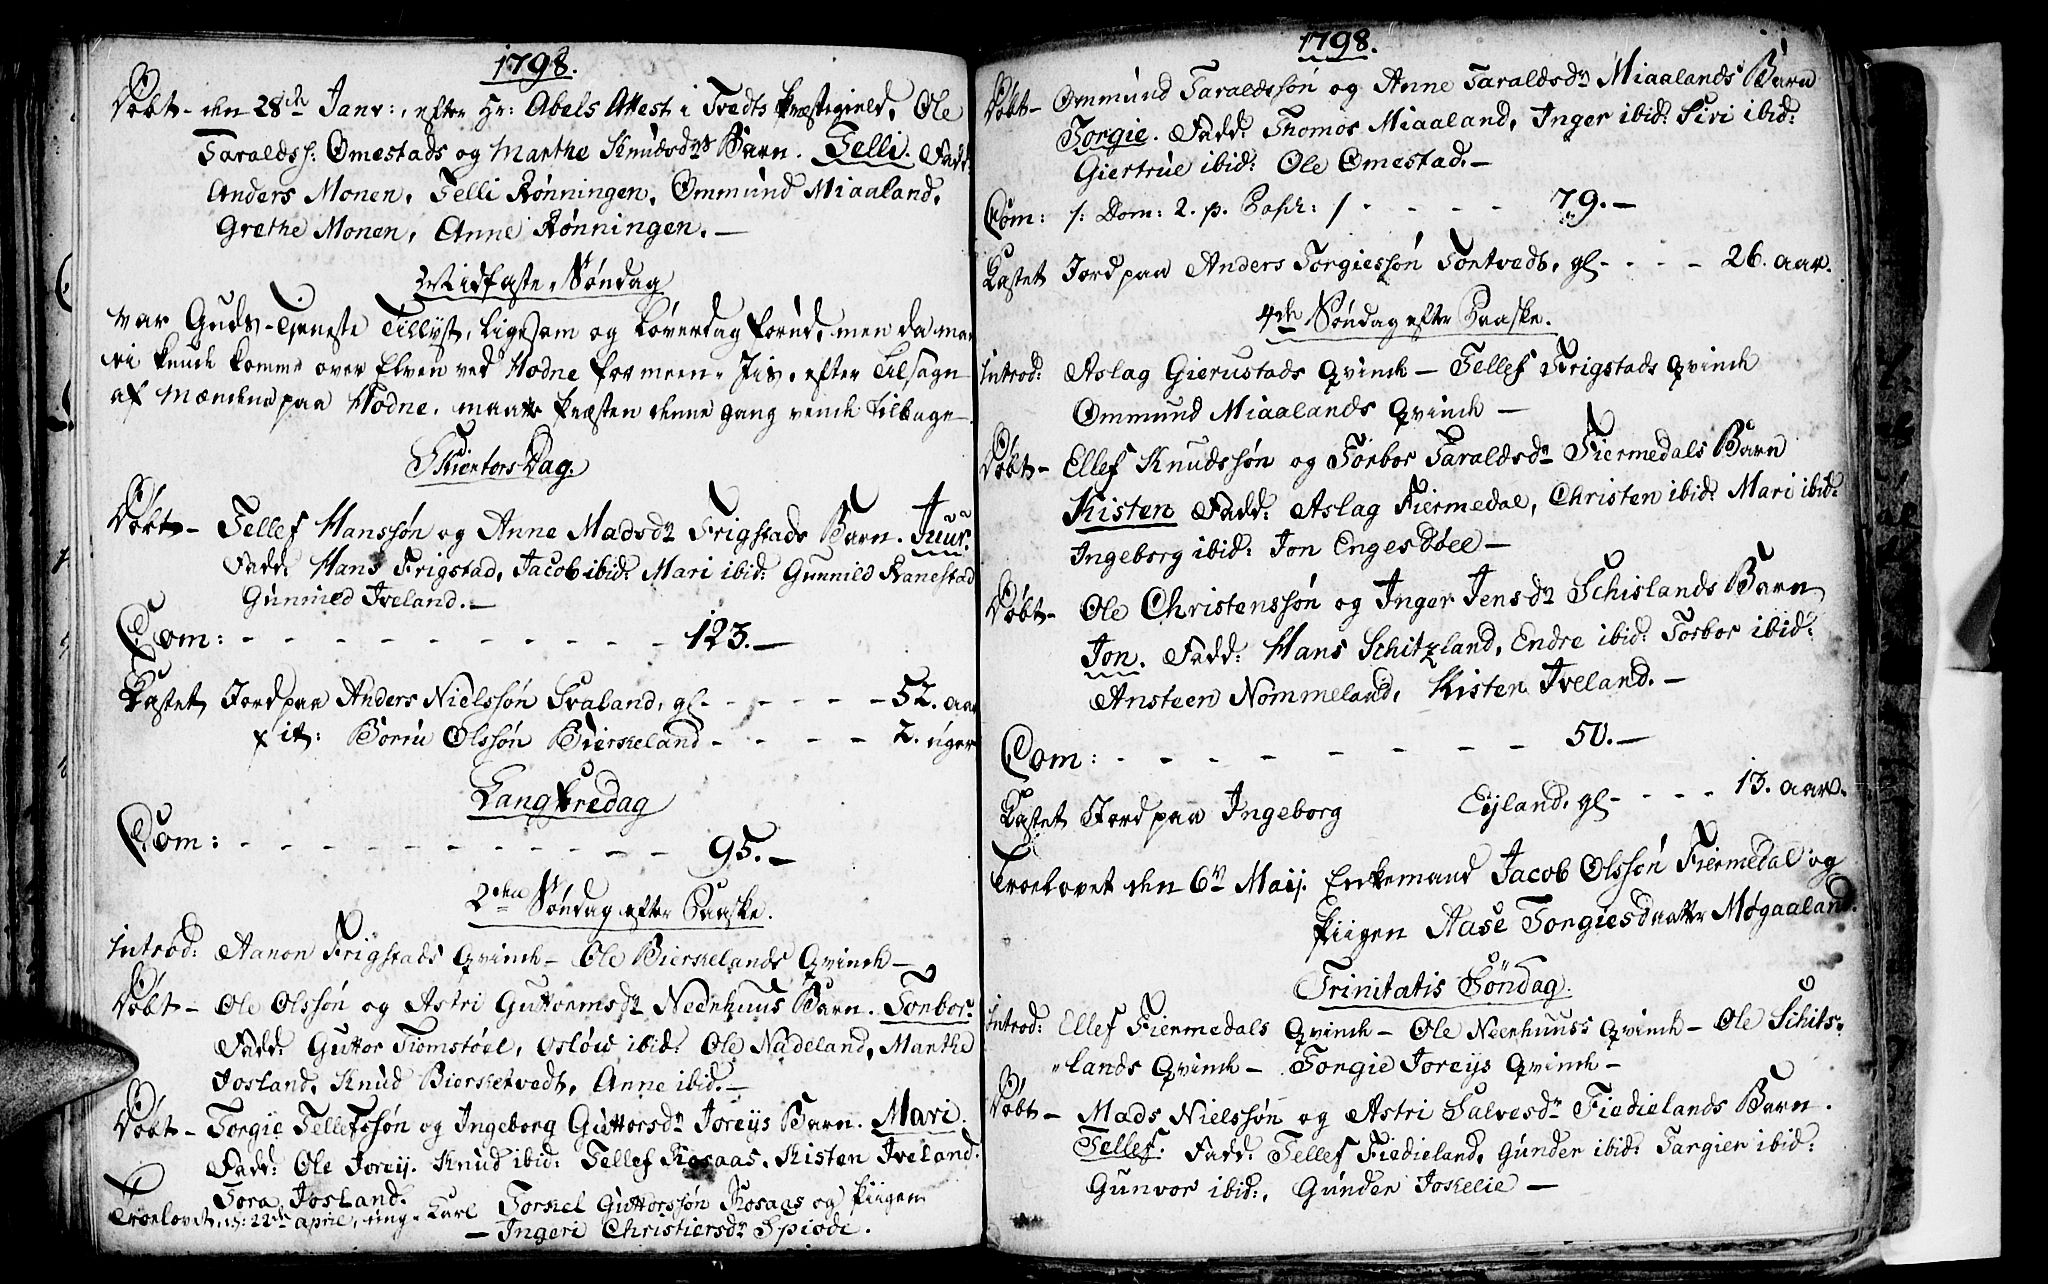 1798.
Døbt - den 28de Janv:, efter Hr: Abels Attest i Tvedts Præstegield, Ole
Taraldss: Omestads og Marthe Knudsdrs Barn. Telli. Fadd:
Anders Monen, Telli Rønningen, Ommund Miaaland,
Grethe Monen, Anne Rønningen. —
Midfaste Søndag
var Guds-Tieneste Tillyst, ligesom og Løverdag forud, men da man
ei kunde komme over Elven ved Hodne formeen. Jis, efter Tilsagn
af Mændene paa Hodne, maatte Præsten denne gang vende tilbage
Skiertors Dag.
Døbt - Tellef Hanssøn og Anne Madsdr Frigstads Barn. Juur.
Fadd: Hans Frigstad, Jacob ibid: Mari ibid: Gunnild Ranestad
Gunnild Iveland. —
Com: - - - - - - - - - - - 123. —
Kastet Jord paa Anders Nielssøn Svaland, gl - - - - - 52. aar
it: Boriu Olssøn Bierkeland - - - - 2. uger
Langfredag
Com: - - - - - - - - - - - 95. —
2den Søndag efter Paaske.
Introd: Aanon Frigstads Qvinde — Ole Bierkelands Qvinde —
Døbt - Ole Olssøn og Astri Guttormsdr Neerhuus Barn. Torbor.
Fadd: Guttor Tiomstøel, Osløw ibid: Ole Nadeland, Marthe
Josland, Knud Bierketvedt, Anne ibid. —
Døbt - Torgie Tellefssøn og Ingeborg Guttorsdr Joreys Barn. Mari.
Fadd: Ole Jorey. Knud ibid: Tellef Kosaas. Kisten Iveland.
Tora Josland.
Troelovet, d: 22de april, ung-Karl Torkel Guttorssøn Kosaas og Piigen
— Ingeri Christiersdr Spiode.
1798.
Døbt - Ommund Taraldssøn og Anne Taraldsdr Miaalands Barn
Torgie. Fadd: Thomos Miaaland, Inger ibid: Siri ibid:
Giertrue ibid: Ole Omestad. —
Com: /: Dom: 2. p. Pasch: / - - - - - 79. —
Kastet Jord paa Anders Torgiessøn Tortvedt, gl - - - - 26. aar.
4de Søndag efter Paaske.
Introd: Aslag Gierustads Qvinde — Tellef Frigstads Qvinde
Ommund Miaalands Qvinde —
Døbt - Ellef Knudssøn og Torbor Taraldsdr Fiermedals Barn
Kisten Fadd: Aslag Fiermedal, Christen ibid: Mari ibid:
Ingeborg ibid: Jon Engesdøel —
Døbt - Ole Christenssøn og Inger Jensdr Schislands Barn
Jon. Fadd: Hans Schitzland, Endre ibid: Torbor ibid:
Ansteen Nommeland, Kisten Iveland. —
Com: - - - - - - - - 50. —
Kastet Jord paa Ingeborg Eyland, gl - - - - 13. aar.
Troelovet den 6te Maij. Enkemand Jacob Olssøn Fiermedal og
Piigen Aase Torgiesdaatter Møgaaland.
Trinitatis Søndag.
Introd: Ellef Fiermedals Qvinde — Ole Neerhuuss Qvinde — Ole Schits-
"lands Qvinde — Torgie Joreys Qvinde —
Døbt - Mads Nielssøn og Astri Salvesdr Fiedielands Barn.
Tellef. Fadd: Tellef Fiedieland, Gunder ibid: Targier ibid:
Gunvor ibid:, Gunder Joskelie —